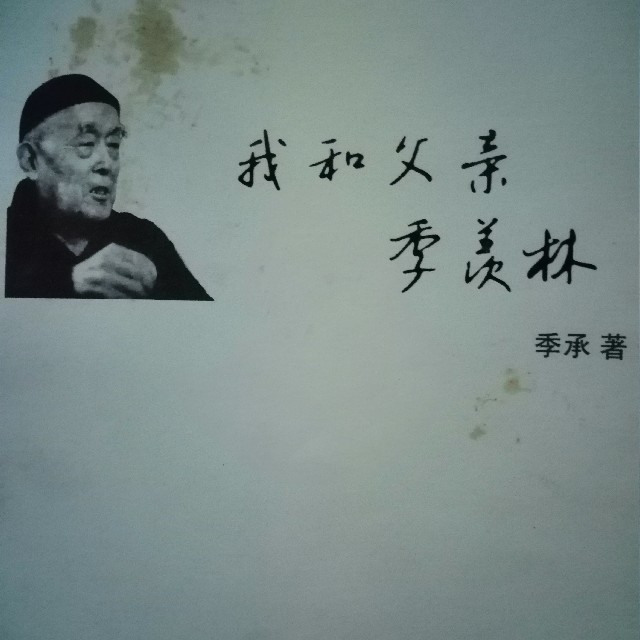 我和父亲
季羡林
季承 著